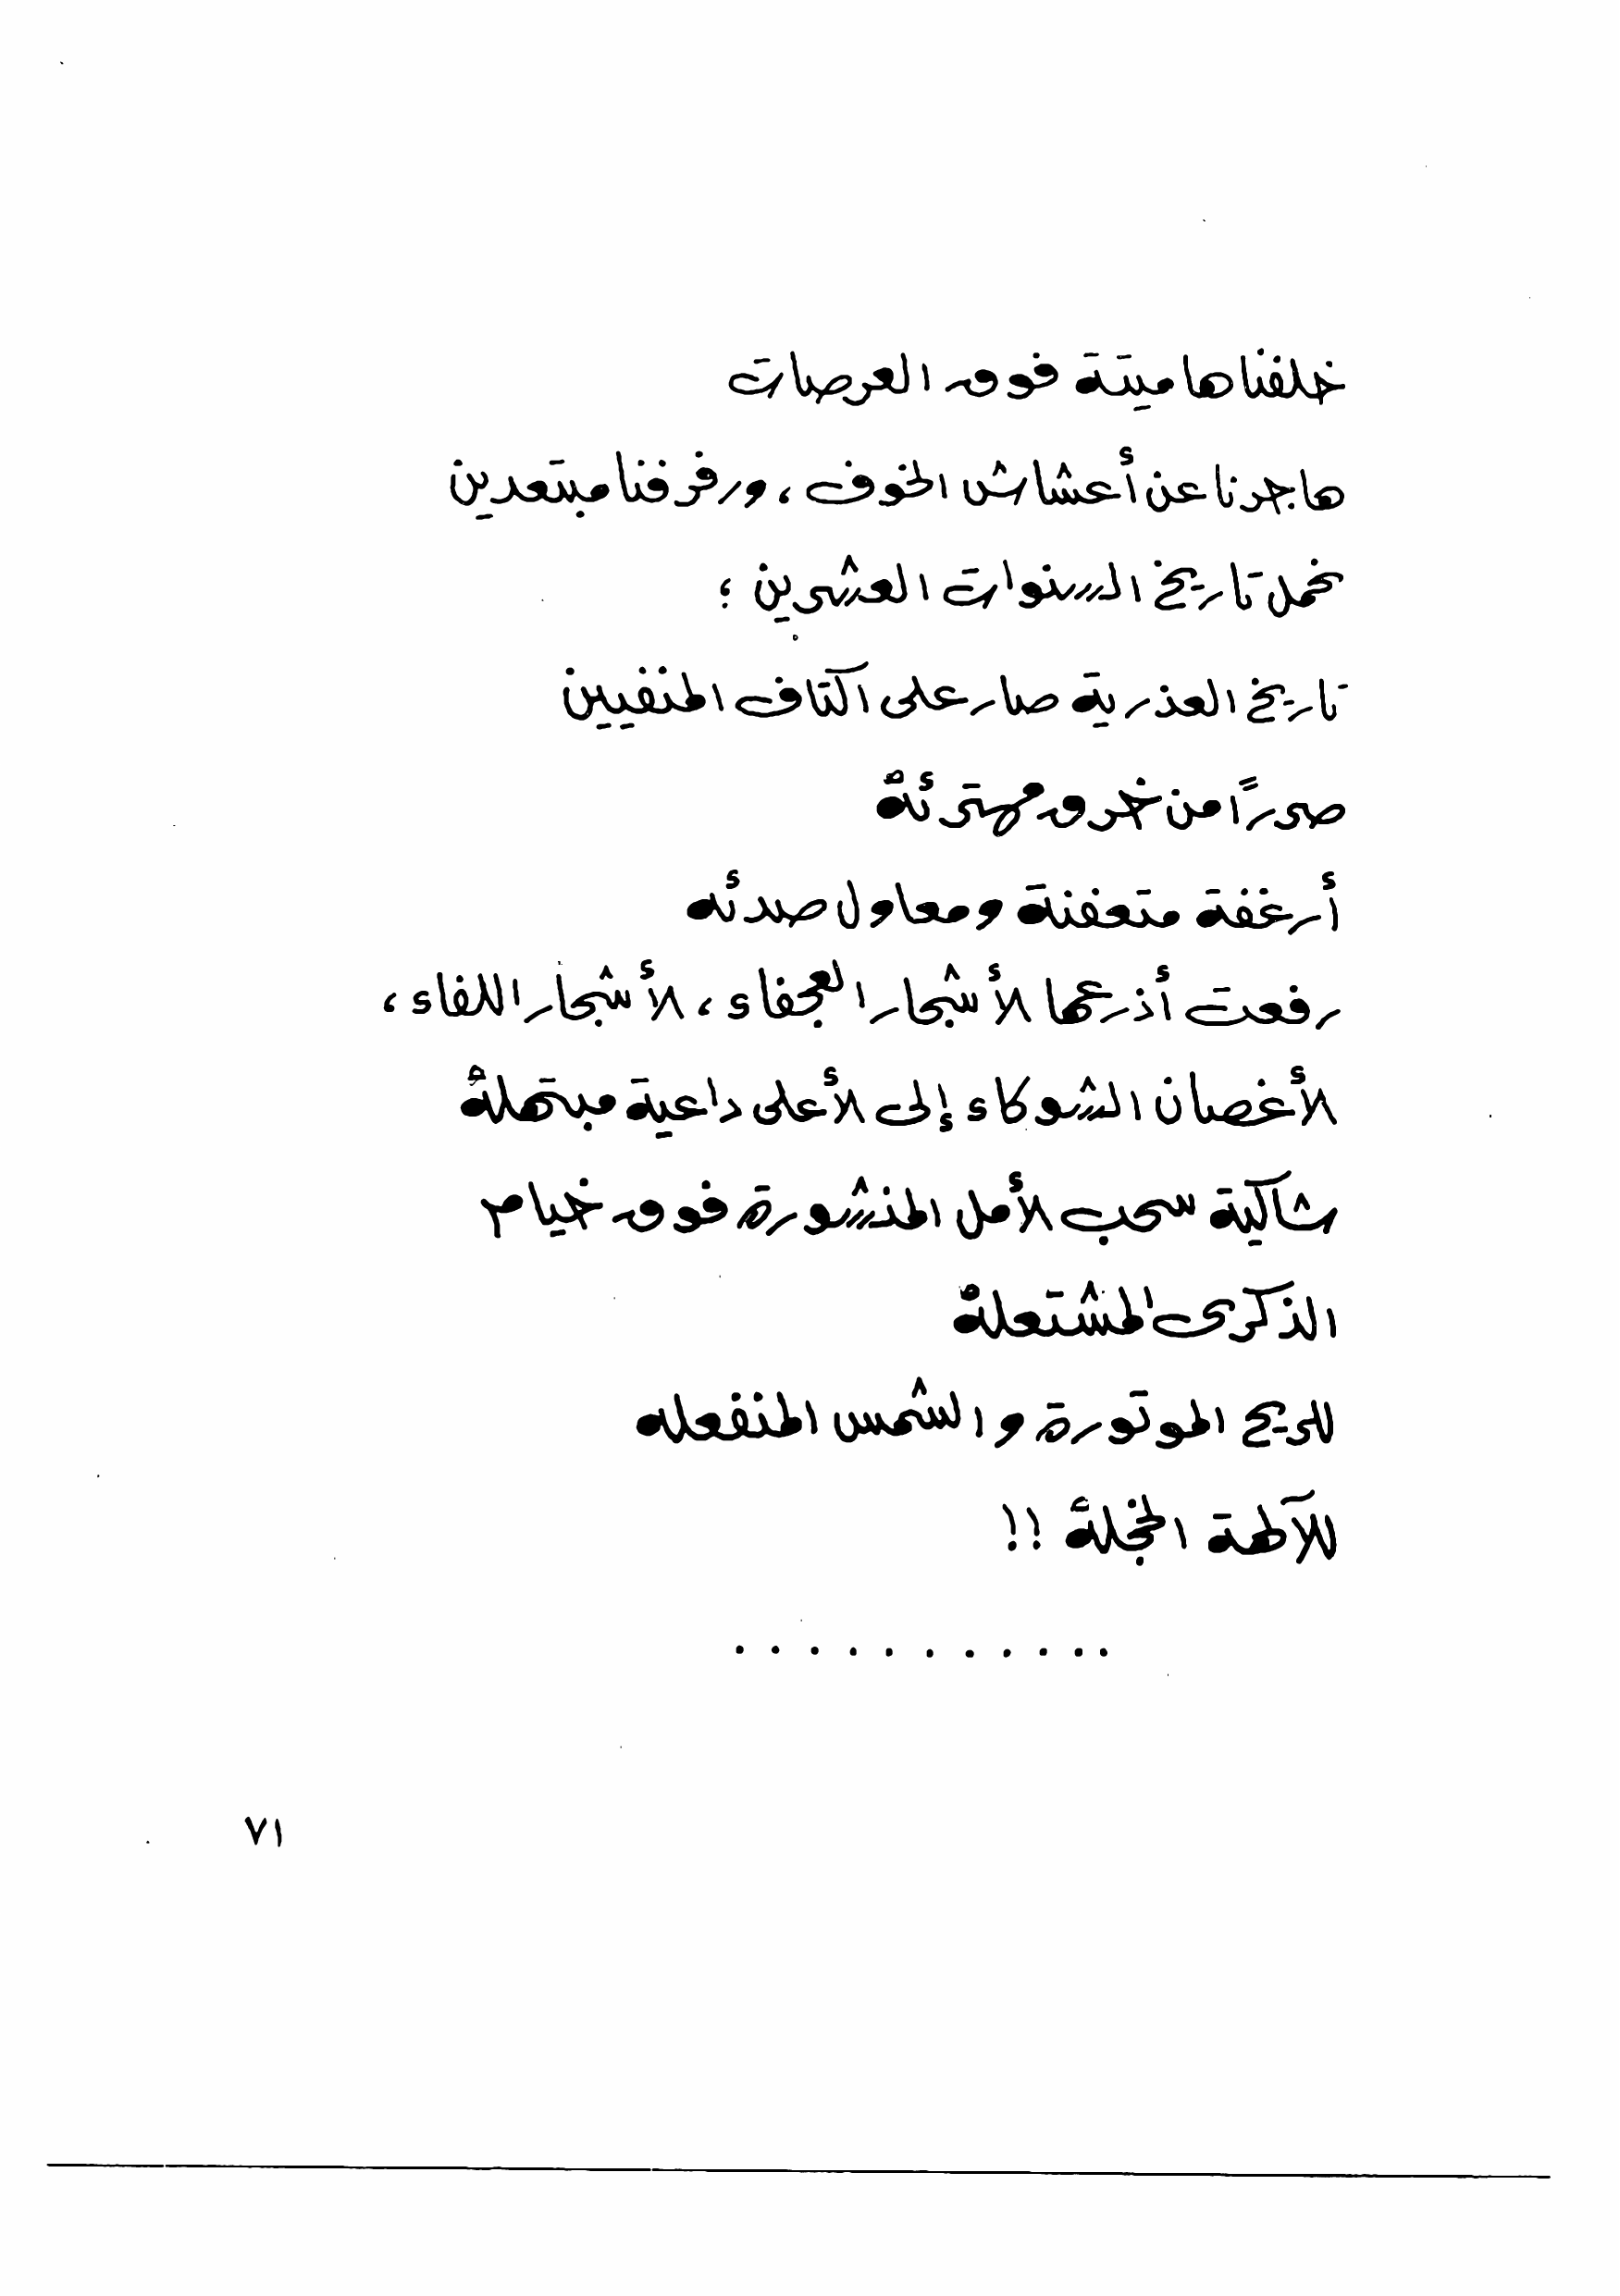 خلفناها ميتة فوق العرصات
هاجرنا عن أعشاش الخوف ، ورفرفنا مبتعدين
نحمل تاريخ السنوات العشرين ؛
تاريخ العذرية صار على اكتاف المنفيين
صورًا من خرق مهترئة
أرغفة متعفنة ومعاول صدئه
رفعت أذرعها الأشجار العجفاء ، الأشجار اللفاء ،
الأغصان الشوكاء إلى الأعلى داعية مبتهلة
شاكية سحب الأمل المنشورة فوق خيام
الذكرى المشتعلة
للريح الموتورة والشمس المنفعله
للآلهة الخجلة !!
. . . . . . . . . . .
٧١